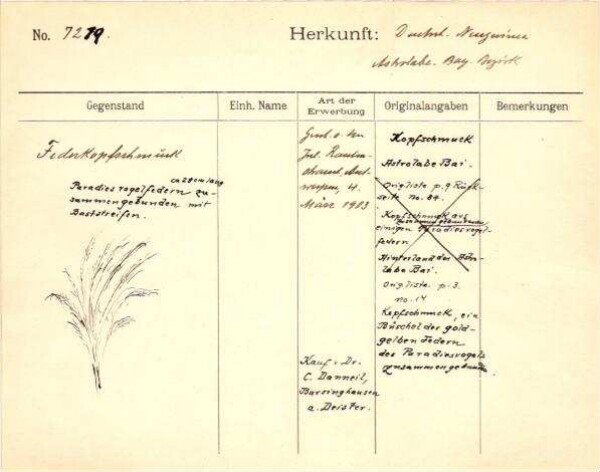 No. 7279.
Herkunft: Deutsch. Neuguinea
Astrolabe. Bay. Bezirk
Gegenstand
Einh. Name
Art der Erwerbung
Originalangaben
Bemerkungen
Federkopfschmuck
ca 28 cm lang
Paradiesvogelfedern zu-
sammengebunden mit
Baststreifen.
März 1913
Kauf: Dr.
C. Danneil,
Barsinghausen
a. Deister.
Kopfschmuck
Astrolabe Bai.
Orig liste p. 9 Rück-
seite no. 84.
Kopfschmuck aus
zusammengebundenen
einigen Paradiesvogel-
federn
Hinterland der Astro-
labe Bai.
Orig liste. p. 3.
no. 14
Kopfschmuck, ein
Büschel der gold-
gelben Federn
des Paradiesvogels
zusammengebunden